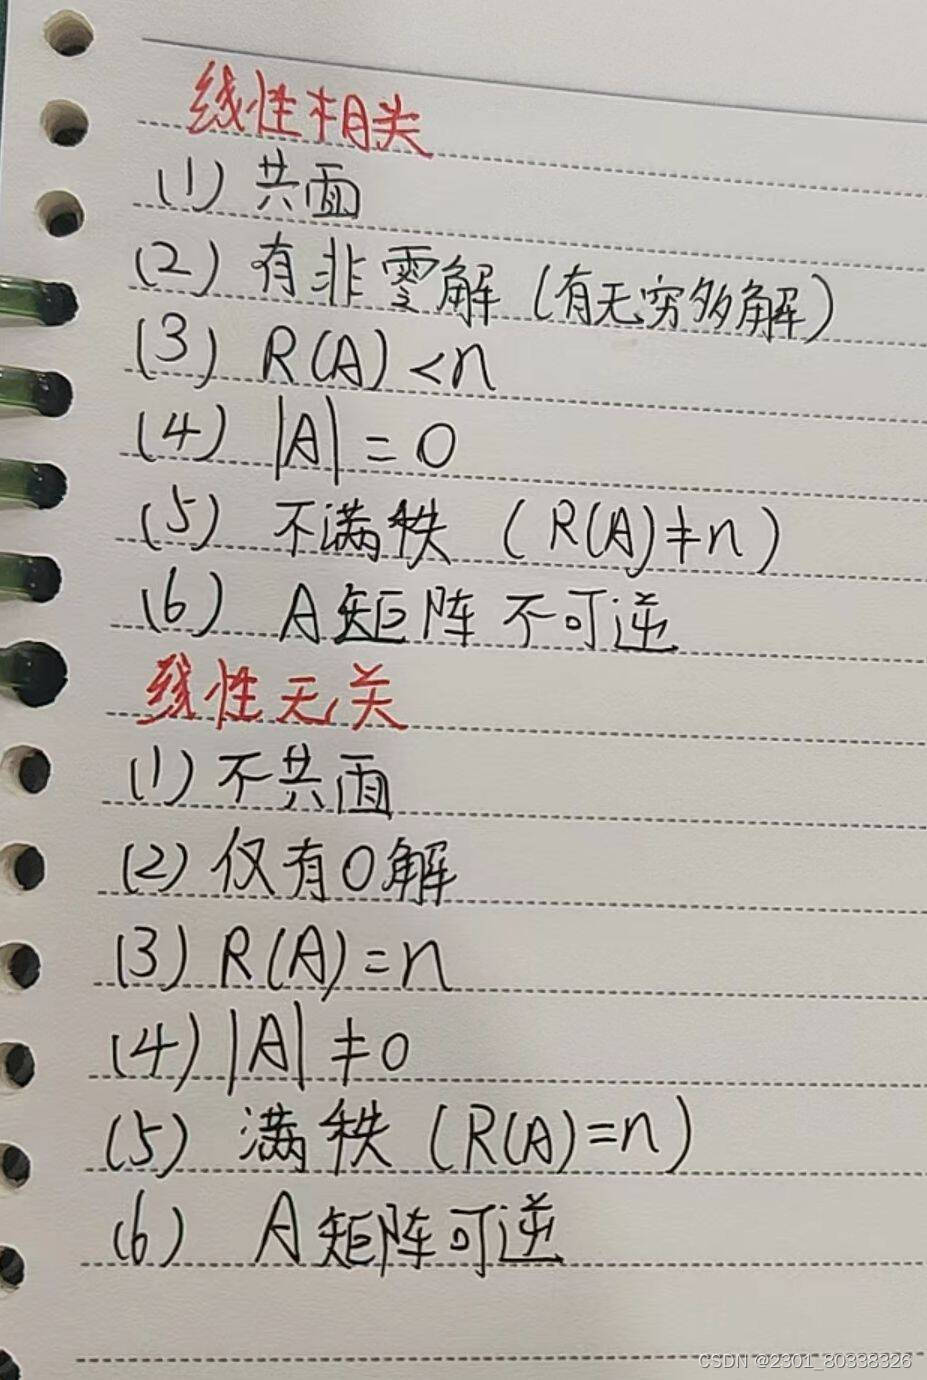 线性相关
(1) 共面
(2) 有非零解 (有无穷多解)
(3) R(A) <n
(4) |A| = 0
(5) 不满秩 (R(A)≠n)
(6) A矩阵不可逆
线性无关
(1) 不共面
(2) 仅有0解
(3) R(A)=n
(4) |A| ≠0
(5) 满秩 (R(A)=n)
(6) A矩阵可逆
CSDN @2301_80338326